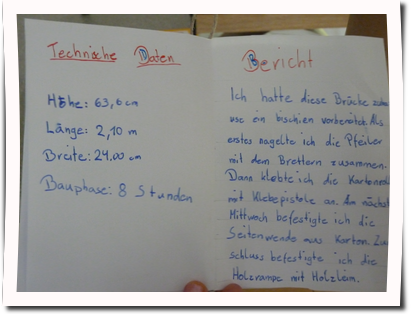 Technische Daten
Höhe: 63,6 cm
Länge: 2,10 m
Breite: 24.00 cm
Bauphase: 8 Stunden
Bericht
Ich hatte diese Brücke
use ein bischien vorbereitet. Als
erstes nagelte ich die Pfeiler
mit dem Brettern zusammen.
Dann klebte ich die
mit Klebepistole an. Am nächst
Mittwoch befestigte ich die
Seitenwende aus Karton. Zu
schluss befestigte ich die
Holzrampe mit Holzleim.